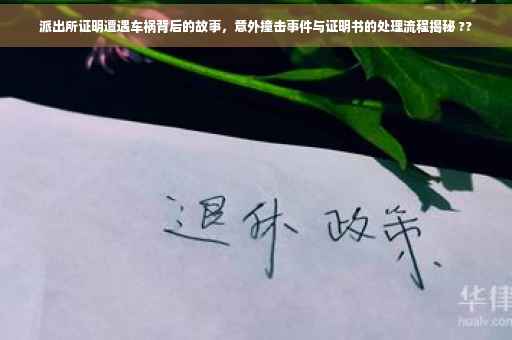 派出所证明遭遇车祸背后的故事，意外撞击事件与证明书的处理流程揭秘 ??
退休 政策
华律
hualv.com